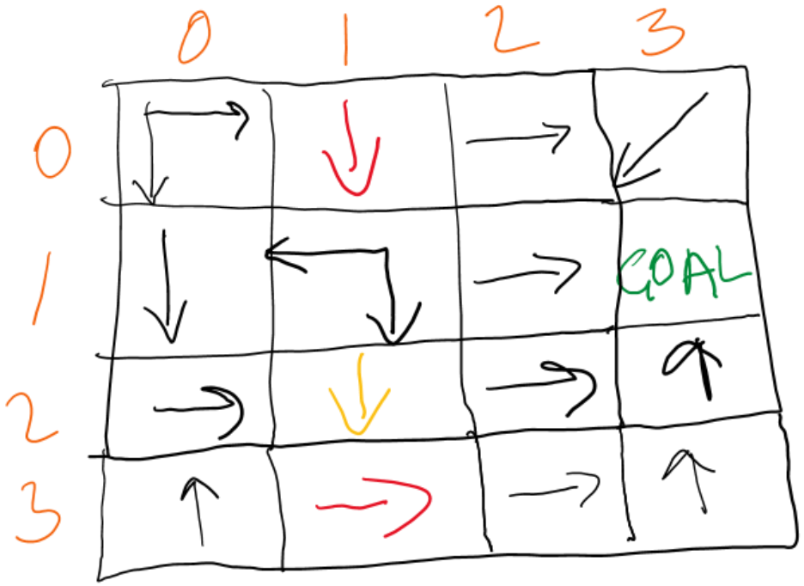 0 1 2 3
0
1 GOAL
2
3